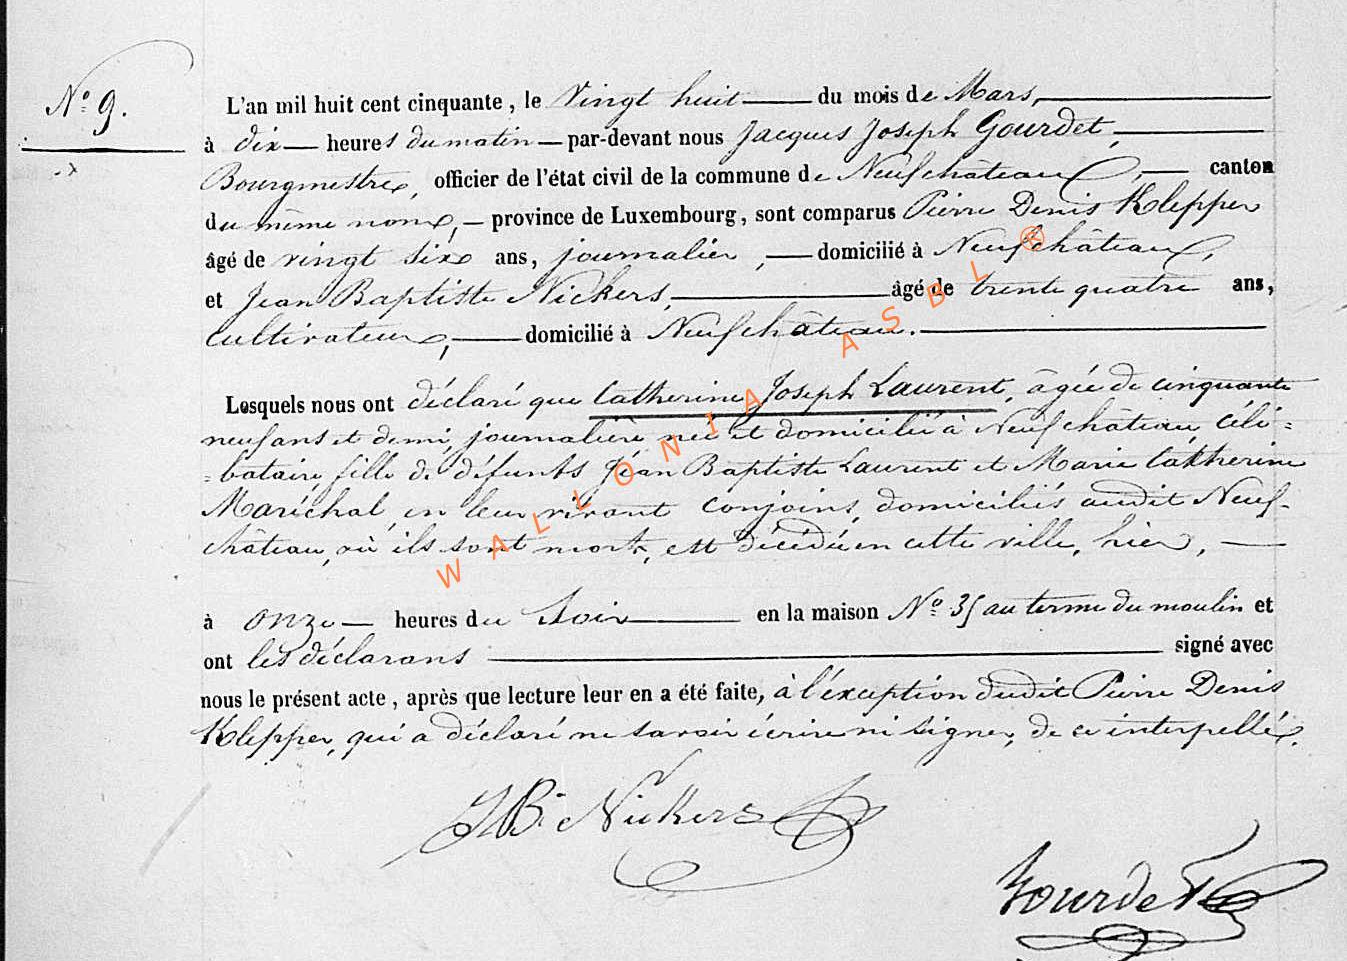 N.º 9.
L'an mil huit cent cinquante, le Vingt huit du mois de Mars,
à dix heures du matin par-devant nous Jacques Joseph Gourdet,
Bourgmestre, officier de l'état civil de la commune de Neufchâteau, canton
du même nom, province de Luxembourg, sont comparus Pierre Denis Klepper
âgé de vingt six ans, journalier, domicilié à Neufchâteau,
et Jean Baptiste Nickers, âgé de trente quatre ans,
cultivateur, domicilié à Neufchâteau.
Lesquels nous ont déclaré que Catherine Joseph Laurent, âgée de cinquante
neuf ans et demi, journalière née et domiciliée à Neufchâteau, céli=
=bataire fille de défunts Jean Baptiste Laurent et Marie Catherine
Maréchal, en leur vivant conjoins, domiciliés audit Neuf-
château, où ils sont morts, est décédée en cette ville, hier,
à onze heures du soir en la maison N.º 35 au terme du moulin et
ont les déclarans signé avec
nous le présent acte, après que lecture leur en a été faite, à l'exception dudit Pierre Denis
Klepper, qui a déclaré ne savoir écrire ni signer, de ce interpellé.
JB. Nickers
Gourdet
WALLONIA ASBL ®